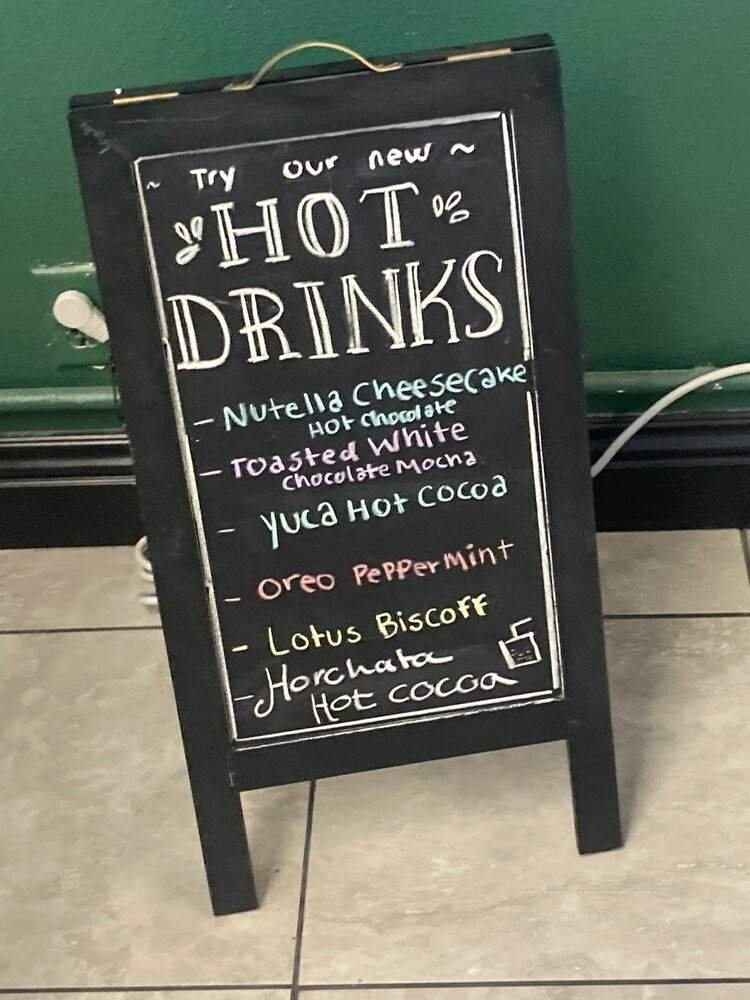 ~ Try our new ~
HOT
DRINKS
- Nutella Cheesecake
Hot Chocolate
- Toasted White
Chocolate Mocha
- Yuca Hot Cocoa
- Oreo Peppermint
- Lotus Biscoff
- Horchata
Hot cocoa